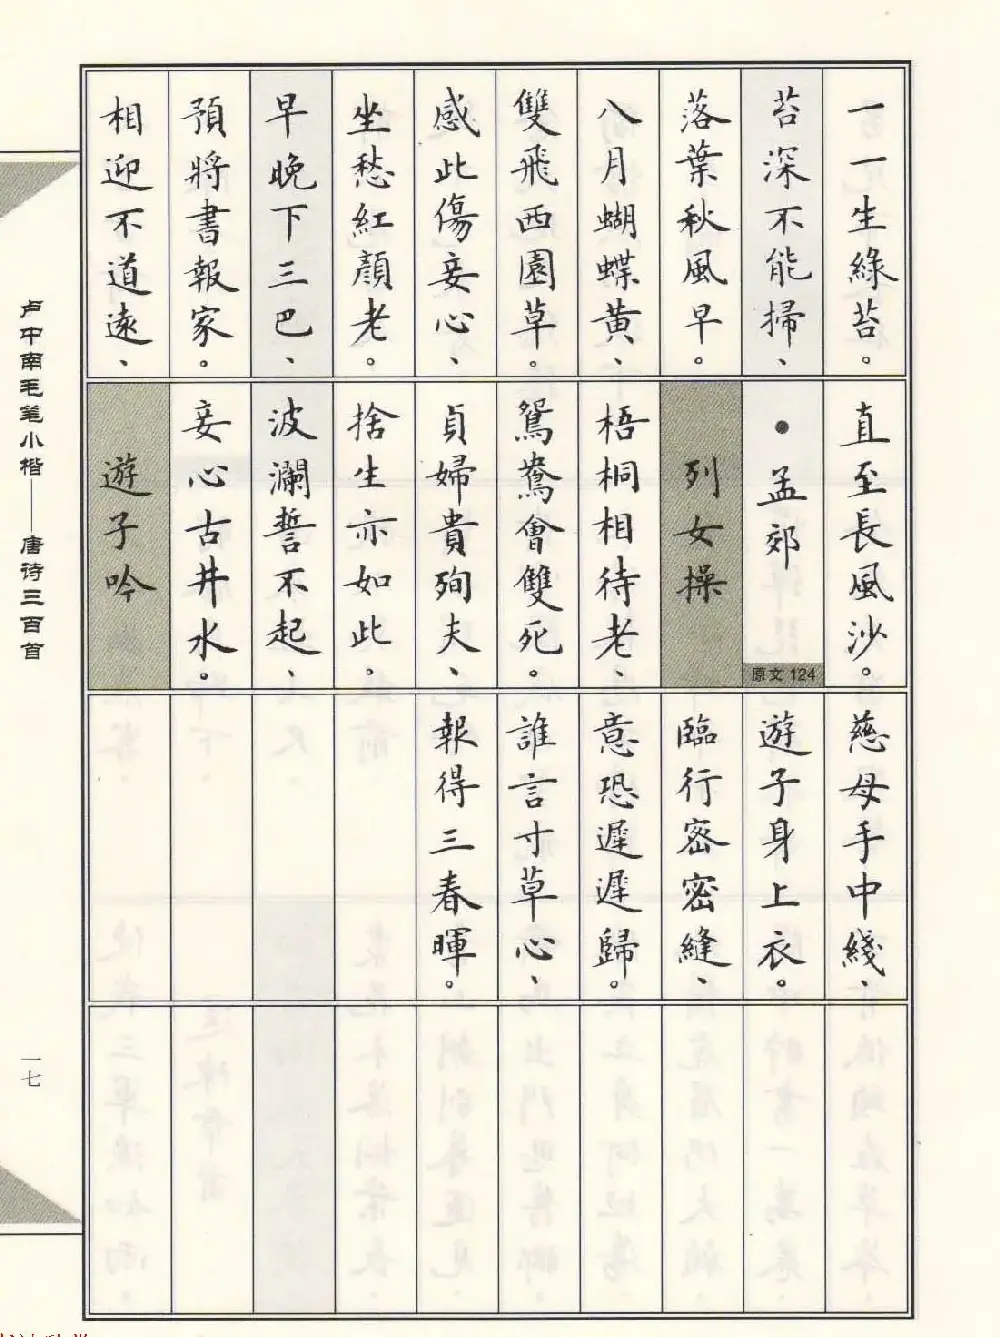 一一生綠苔。
苔深不能掃、
落葉秋風早。
八月蝴蝶黃、
雙飛西園草。
感此傷妾心、
坐愁紅顏老。
早晚下三巴、
預將書報家。
相迎不道遠、
直至長風沙。
●孟郊
原文 124
列女操
梧桐相待老、
鴛鴦會雙死。
貞婦貴殉夫、
捨生亦如此。
波瀾誓不起、
妾心古井水。
遊子吟
慈母手中綫、
遊子身上衣。
臨行密密縫、
意恐遲遲歸。
誰言寸草心、
報得三春暉。
卢中南毛笔小楷——唐诗三百首
一七